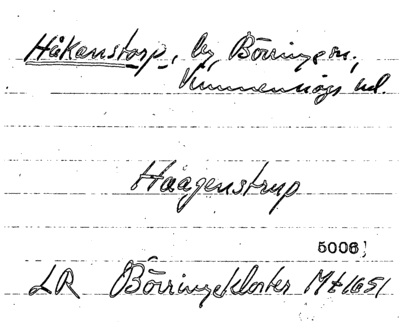 Håkanstorp, by, Börringe sn,
Vemmenhögs hd.
Haagenstrup
5006;
LR Börringekloster Mt 1651